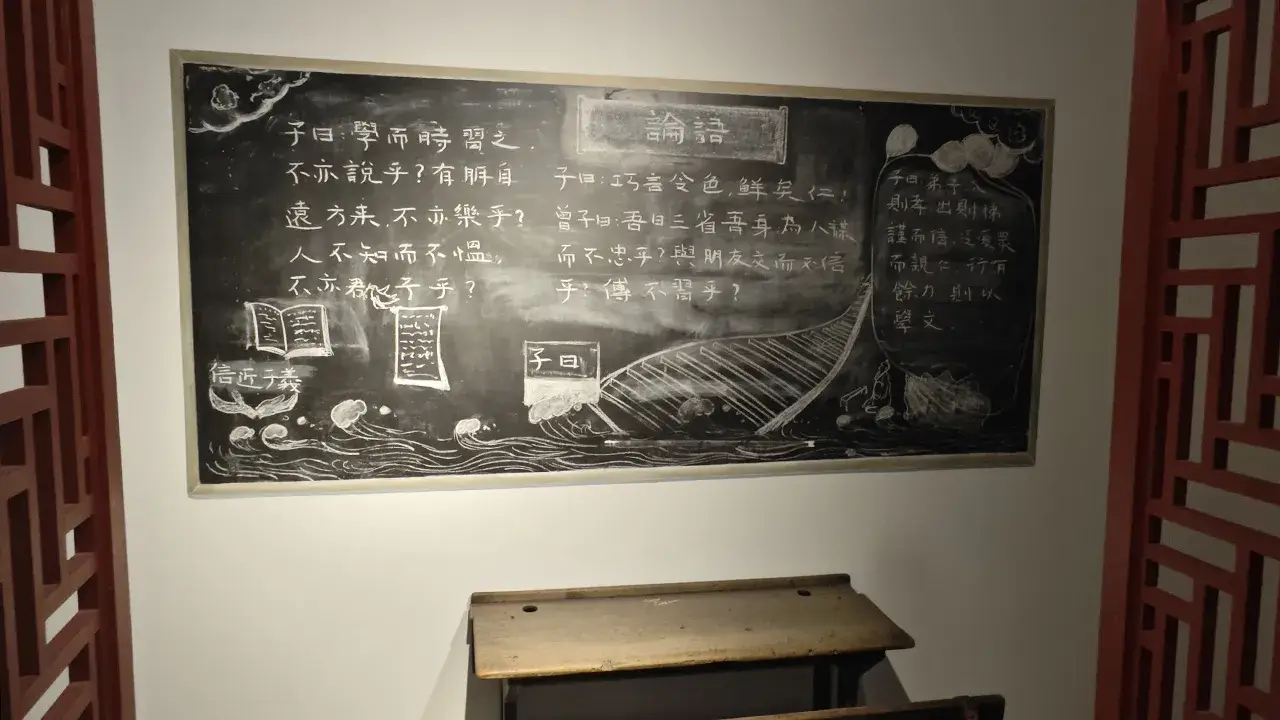 論語
子曰:學而時習之.
不亦說乎?有朋自
遠方来.不亦樂乎?
人不知而不愠.
不亦君子乎?
子曰:巧言令色.鮮矣仁!
曾子曰:吾日三省吾身.為人謀
而不忠乎?與朋友交而不信
乎?傳不習乎?
子曰.弟子入
則孝出則悌
謹而信.泛愛眾
而親仁.行有
餘力.則以
學文.
信近于義
子曰